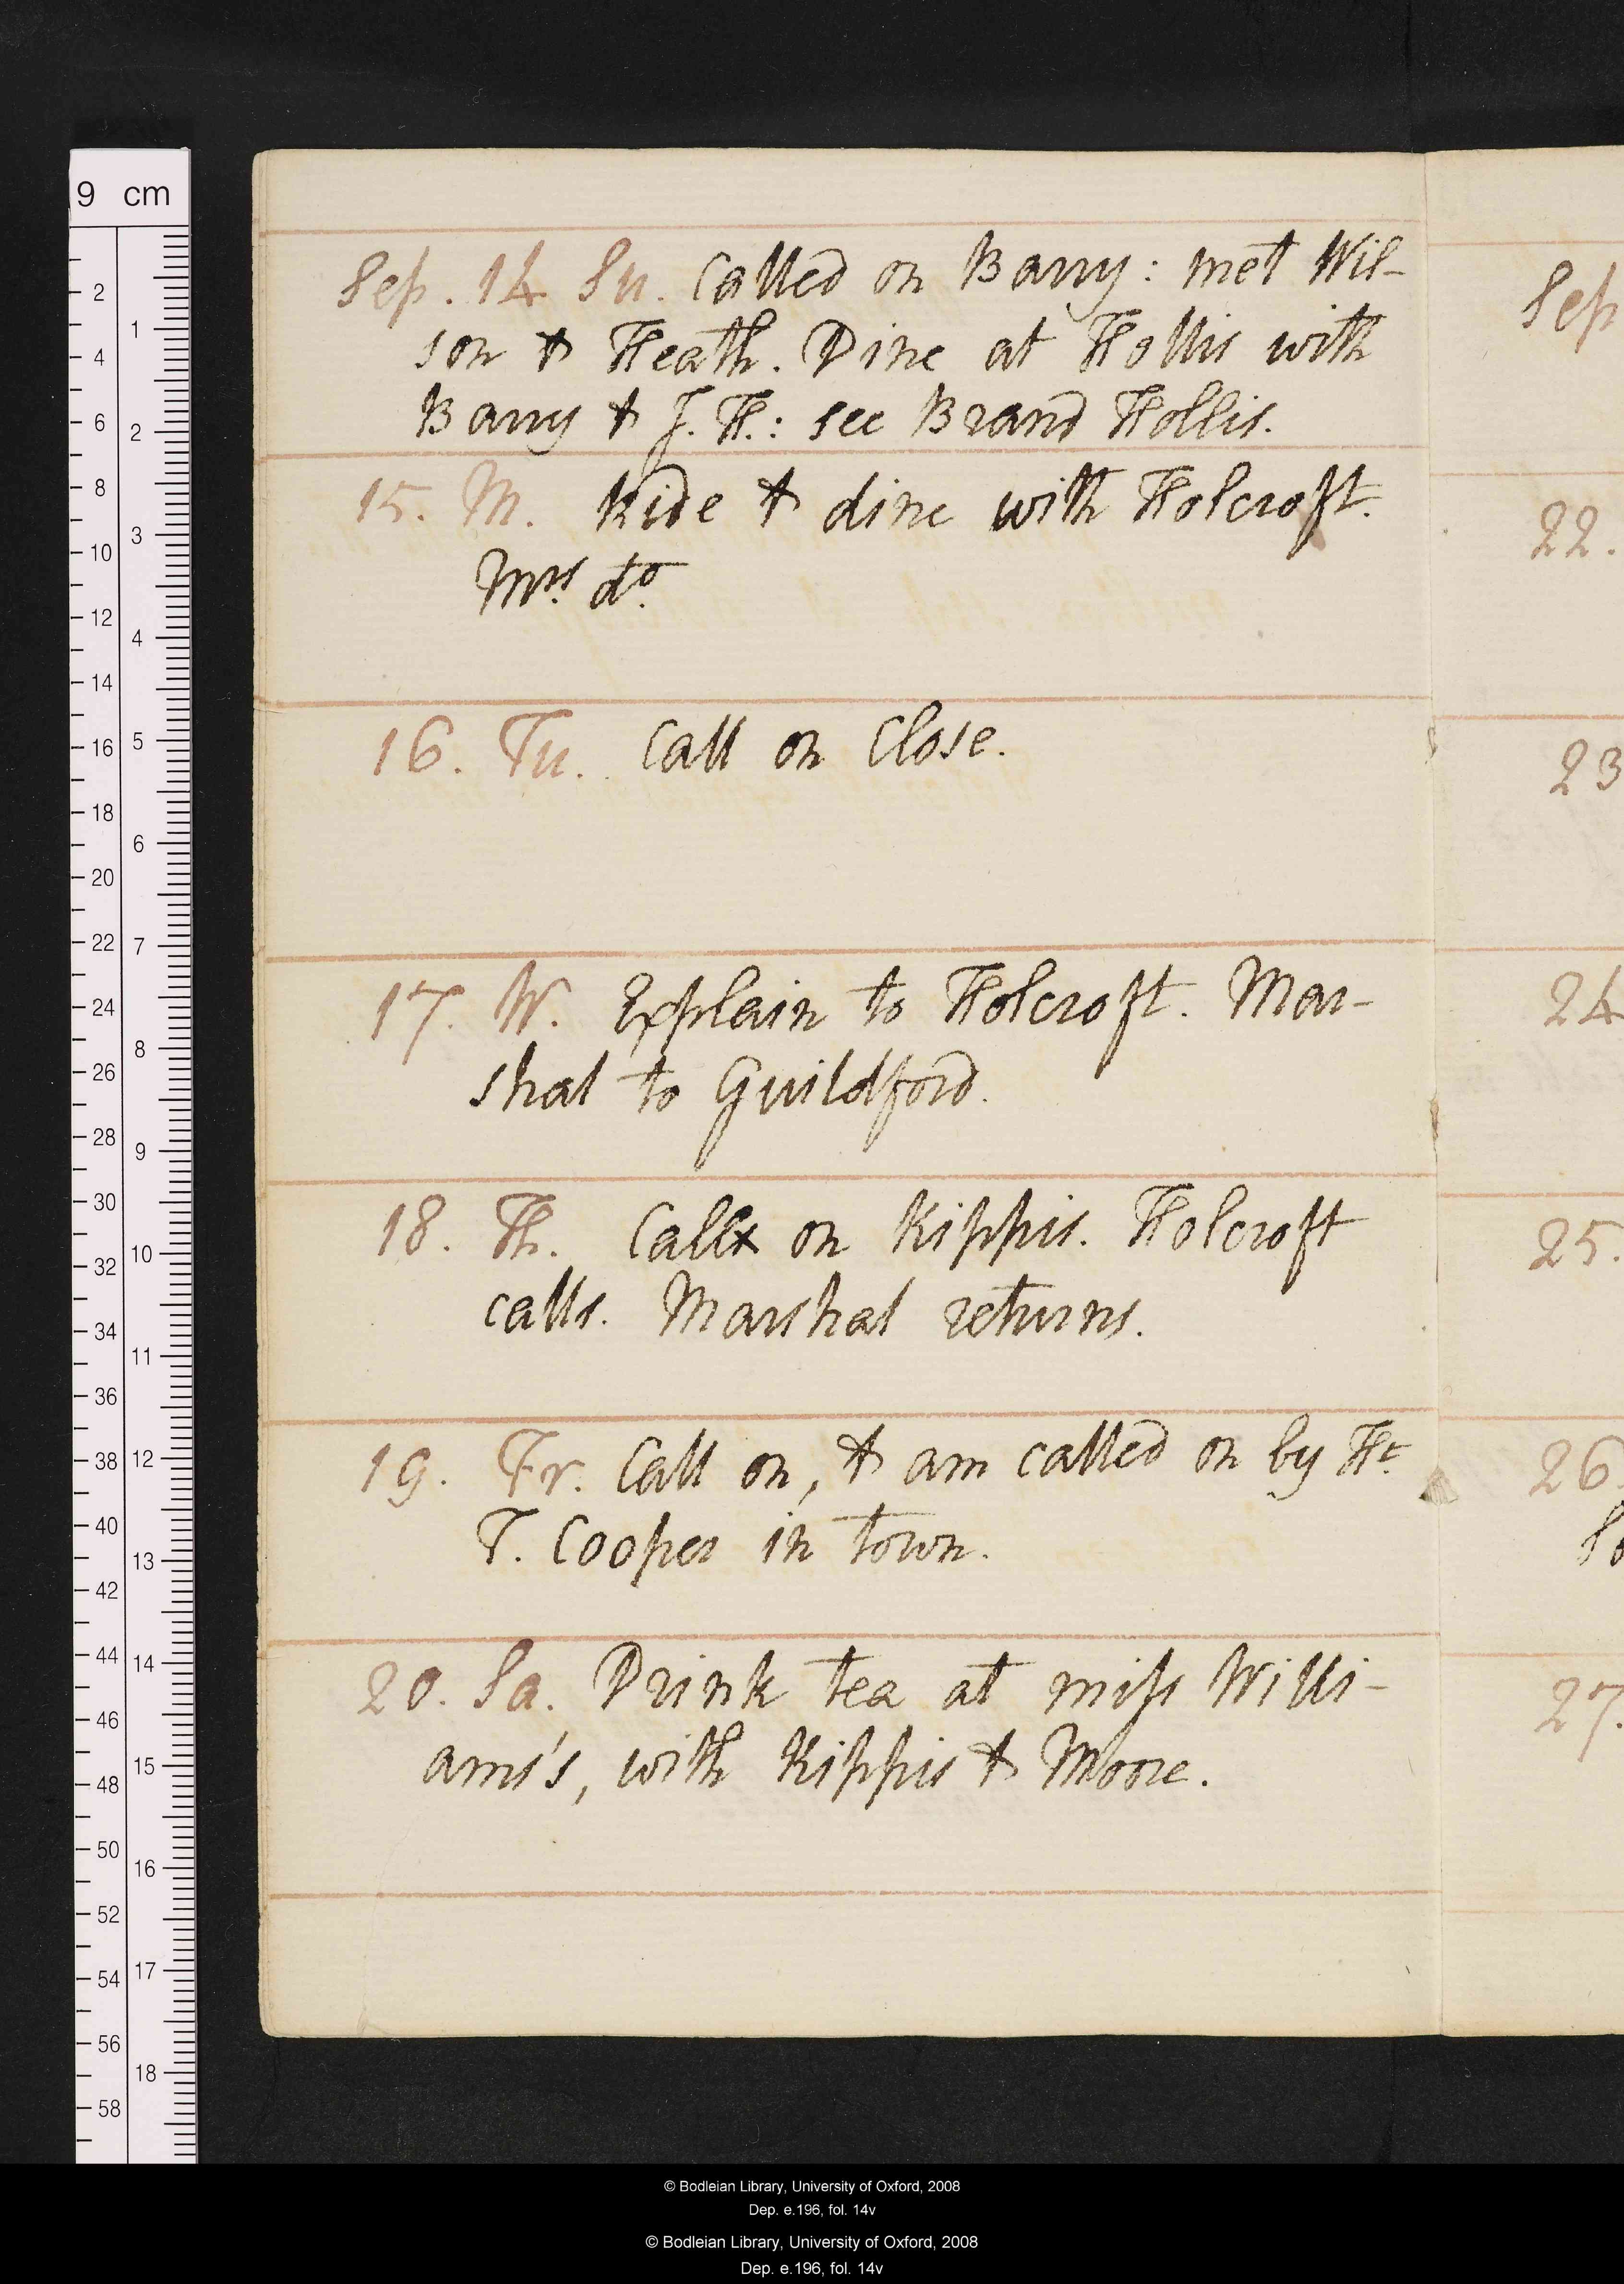 9 cm
Sep. 14 Su. Called on Barry: met Wil-
son & Heath. Dine at Hollis with
Barry & J. H.: see Brand Hollis.
15. M. Ride & dine with Holcroft.
Mrs. do.
16. Tu. Call on Close.
17. W. Explain to Holcroft. Mar-
shal to Guildford.
18. Th. Call on Kippis. Holcroft
calls. Marshal returns.
19. Fr. Call on, & am called on by Ht.
T. Cooper in town.
20. Sa. Drink tea at miss Willi-
ams's, with Kippis & Moore.
Sep
22.
23
24
25.
26.
So
27.
2
4
6
8
10
12
14
16
18
20
22
24
26
28
30
32
34
36
38
40
42
44
46
48
50
52
54
56
58
1
2
3
4
5
6
7
8
9
10
11
12
13
14
15
16
17
18
© Bodleian Library, University of Oxford, 2008
Dep. e.196, fol. 14v
© Bodleian Library, University of Oxford, 2008
Dep. e.196, fol. 14v